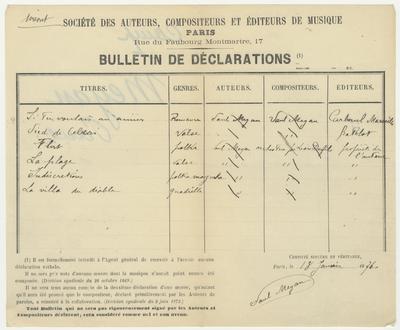 SOCIÉTÉ DES AUTEURS, COMPOSITEURS ET ÉDITEURS DE MUSIQUE
PARIS
Rue du Faubourg Montmartre, 17
BULLETIN DE DÉCLARATIONS (1)
TITRES. GENRES. AUTEURS. COMPOSITEURS. EDITEURS.
Si tu voulais m'aimer Romance Paul Mezan Paul Mezan Carbonel Marseille
Valse
Flirt polka propriété de
La plage valse l'auteur
Indiscrétions polka mazurka
La villa du diable quadrille
(1) Il est formellement interdit à l'Agent général de recevoir à l'avenir aucune
déclaration verbale.
Il ne sera pris note d'aucune œuvre dont la musique n'aurait point encore été
composée.
Il ne sera tenu aucun compte de la deuxième déclaration d'une œuvre, qu'autant
qu'il aura été prouvé que le compositeur, déclaré primitivement par les Auteurs de
paroles, a renoncé à la collaboration.
Tout Bulletin qui ne sera pas rigoureusement signé par les Auteurs et
Compositeurs déclarant, sera considéré comme nul et non avenu.
CERTIFIÉ SINCÈRE ET VÉRITABLE,
Paris, le 18 Janvier
Paul Mezan